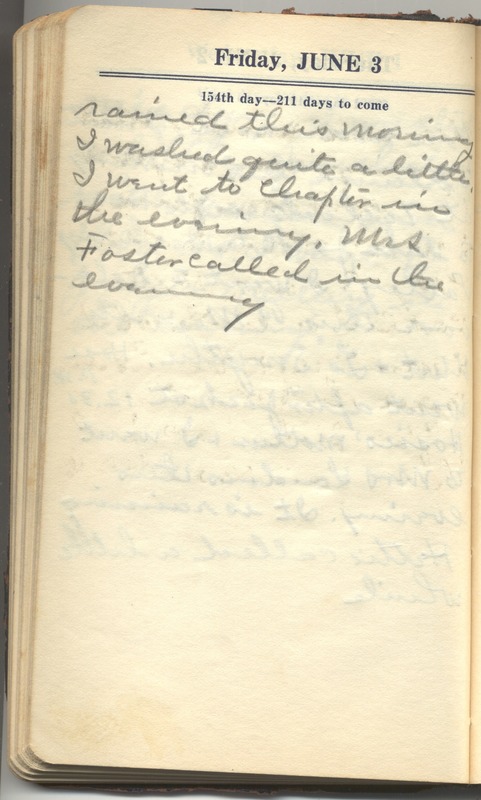 Friday, JUNE 3
154th day—211 days to come
rained this morning
I washed quite a little.
I went to Chapter in
the evening. Mrs
Foster called in the
evening